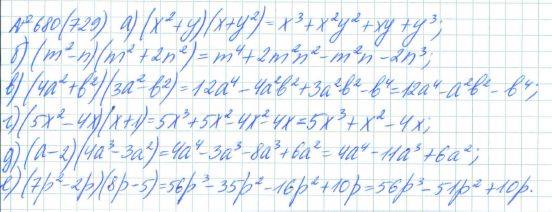 №680(729) а) (x²+y)(x+y²)=x³+x²y²+xy+y³;
б) (m²-n)(m²+2n²)=m⁴+2m²n²-m²n-2n³;
в) (4a²+b²)(3a²-b²)=12a⁴-4a²b²+3a²b²-b⁴=12a⁴-a²b²-b⁴;
г) (5x²-4x)(x+1)=5x³+5x²-4x²-4x=5x³+x²-4x;
д) (a-2)(4a³-3a²)=4a⁴-3a³-8a³+6a²=4a⁴-11a³+6a²;
е) (7p²-2p)(8p-5)=56p³-35p²-16p²+10p=56p³-51p²+10p.